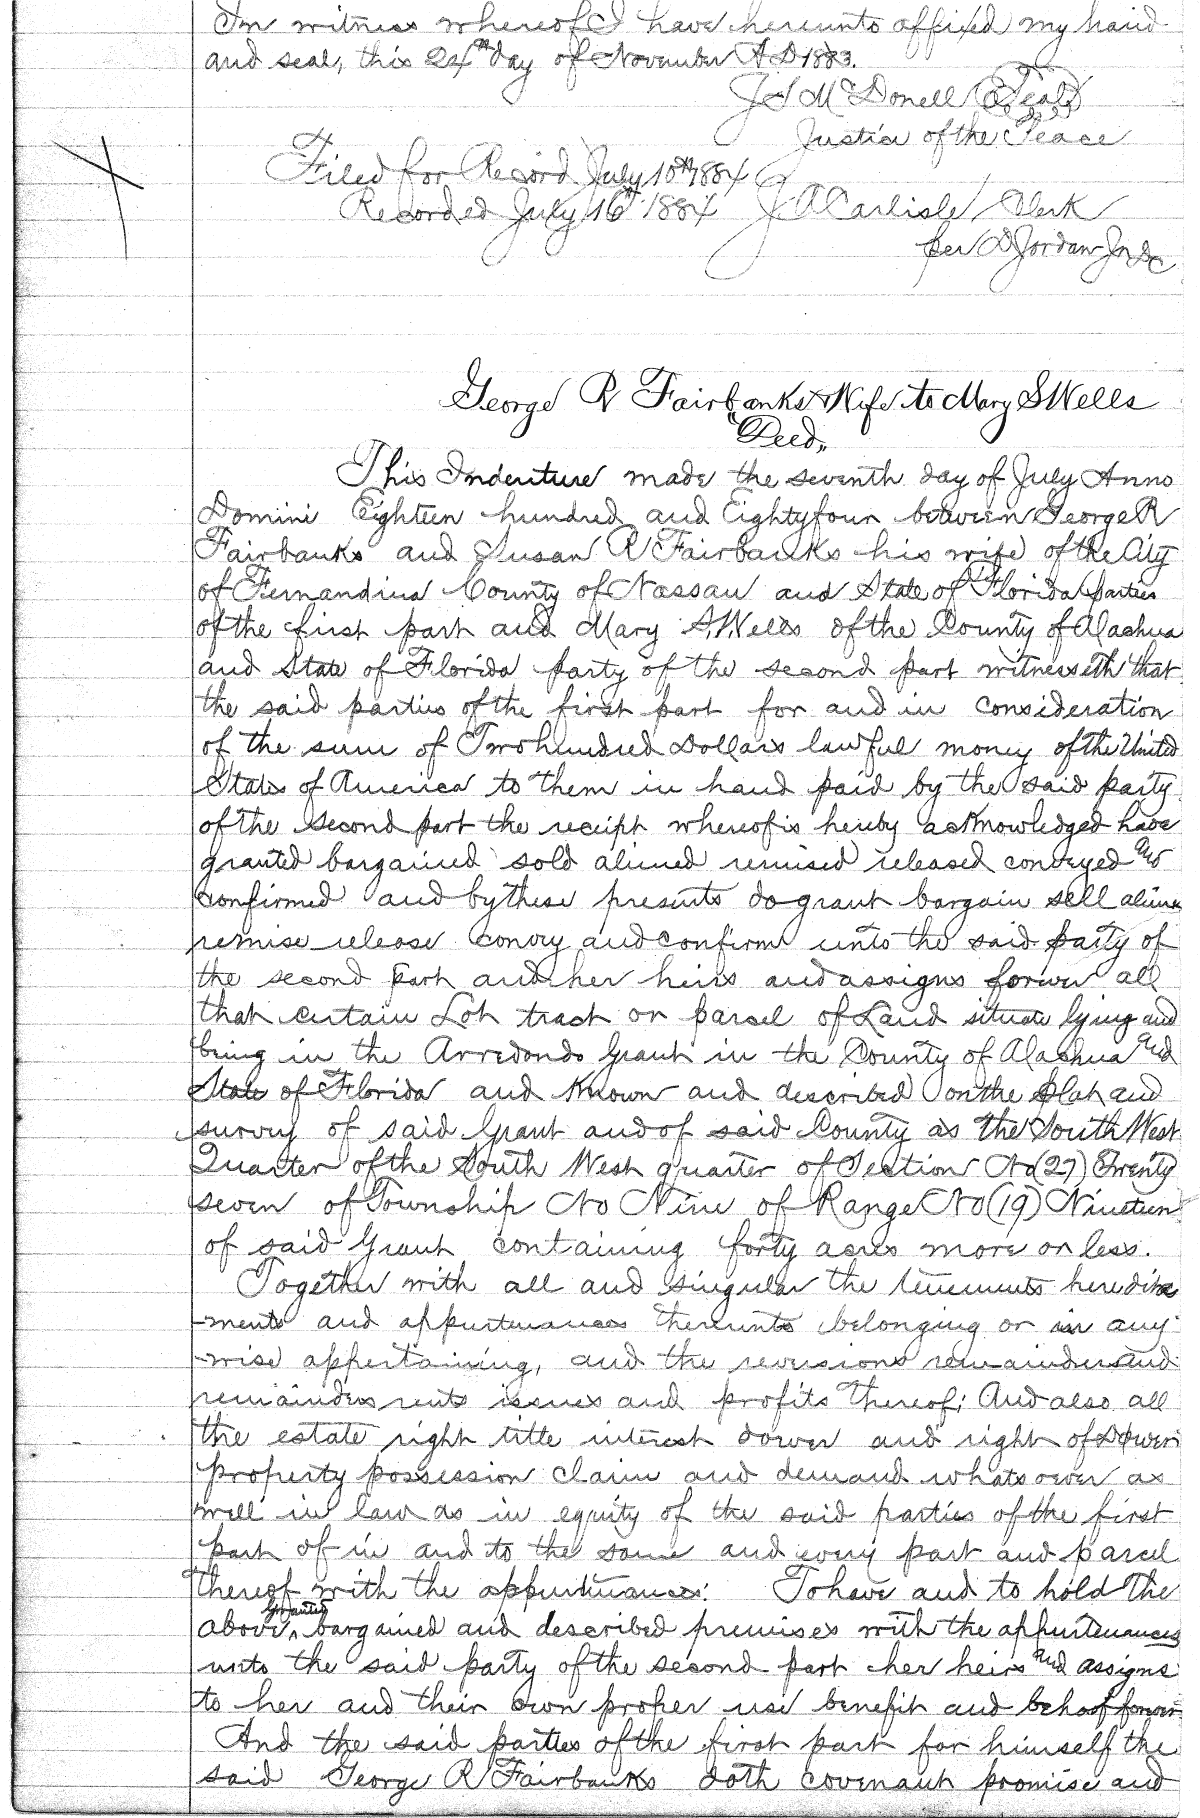 In witness whereof I have hereunto affixed my hand
and seal, this 24th day of November A D 1883.
J S McDonell (Seal)
Justice of the Peace
Filed for Record July 10th 1884
Recorded July 16th 1884 J A Carlisle Clerk
per D Jordan Jr DC
George R Fairbanks & Wife to Mary S Wells
"Deed"
This Indenture made the seventh day of July Anno
Domini Eighteen hundred and Eighty four between George R
Fairbanks and Susan R Fairbanks his wife of the City
of Fernandina County of Nassau and State of Florida parties
of the first part and Mary S. Wells of the County of Alachua
and State of Florida party of the second part witnesseth that
the said parties of the first part for and in consideration
of the sum of Two hundred Dollars lawful money of the United
States of America to them in hand paid by the said party
of the second part the receipt whereof is hereby acknowledged have
granted bargained sold aliened remised released conveyed and
confirmed and by these presents do grant bargain sell aliene
remise release convey and confirm unto the said party of
the second part and her heirs and assigns forever all
that certain Lot tract or parcel of Land situate lying and
being in the Arredondo Grant in the County of Alachua and
State of Florida and known and described on the plat and
survey of said Grant and of said County as the South West
Quarter of the South West quarter of Section No (27) Twenty
seven of Township No Nine of Range No (19) Nineteen
of said Grant containing forty acres more or less.
Together with all and singular the tenements heredita
-ments and appurtenances thereunto belonging or in any
-wise appertaining, and the reversions remainder and
remainders rents issues and profits thereof; And also all
the estate right title interest dower and right of Dower
property possession claim and demand whatsoever as
well in law as in equity of the said parties of the first
part of in and to the same and every part and parcel
thereof with the appurtenances. To have and to hold the
above granted bargained and described premises with the appurtenances
unto the said party of the second part her heirs and assigns
to her and their own proper use benefit and behoof forever
And the said parties of the first part for himself the
said George R Fairbanks doth covenant promise and